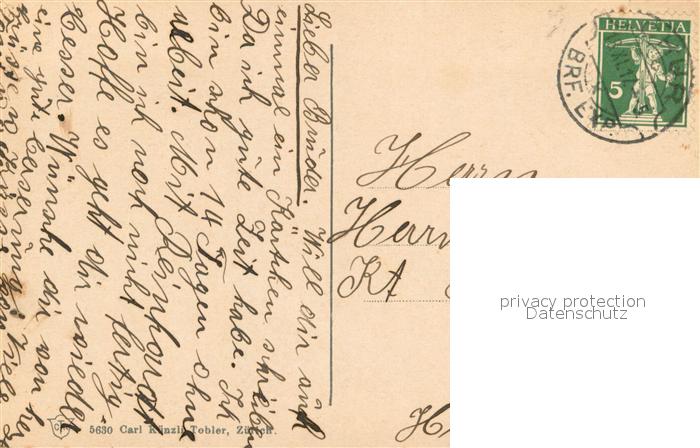 Lieber Bruder. Will dir auch
einmal ein Kärtchen schreiben
Da ich gute Zeit habe. Ich
bin schon 14 Tagen ohne
arbeit. Mit Reinhardt
bin ich noch nicht fertig
Hoffe es geht dir wieder
besser. Wünsche dir von her
eine gute besserung
HELVETIA
5
BRF.
Herrn
Herrn
Kt
privacy protection
Datenschutz
5630 Carl Künzli Tobler, Zürich.